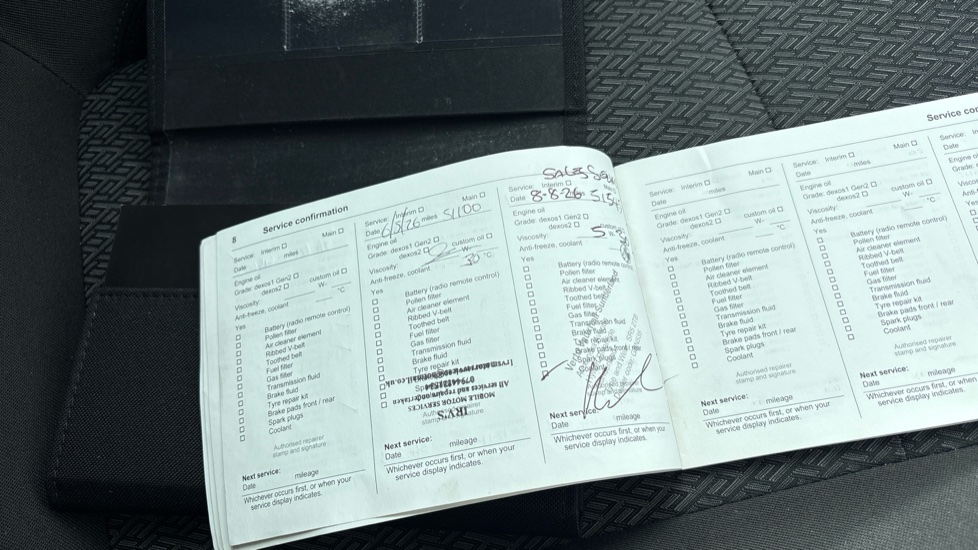 8 Service confirmation
Service: Interim ☐ Main ☐
Date miles
Engine oil
Grade: dexos1 Gen2 ☐ custom oil ☐
dexos2 ☐ W-
Viscosity:
Anti-freeze, coolant °C
Yes
☐ Battery (radio remote control)
☐ Pollen filter
☐ Air cleaner element
☐ Ribbed V-belt
☐ Toothed belt
☐ Fuel filter
☐ Gas filter
☐ Transmission fluid
☐ Brake fluid
☐ Tyre repair kit
☐ Brake pads front / rear
☐ Spark plugs
☐ Coolant
Authorised repairer
stamp and signature
Next service:
Date mileage
Whichever occurs first, or when your
service display indicates.
Service: Interim ☐ Main ☐
Date 6/5/26 miles 51,100
Engine oil
Grade: dexos1 Gen2 ☐ custom oil ☐
dexos2 ☐ W-
Viscosity:
Anti-freeze, coolant 30 °C
Yes
☐ Battery (radio remote control)
☐ Pollen filter
☐ Air cleaner element
☐ Ribbed V-belt
☐ Toothed belt
☐ Fuel filter
☐ Gas filter
☐ Transmission fluid
☐ Brake fluid
☐ Tyre repair kit
IRV'S
MOBILE MOTOR SERVICES
All services and repairs undertaken
Next service:
Date mileage
Whichever occurs first, or when your
service display indicates.
SALES
Service: Interim ☐
Date 8-8-26
Engine oil
Grade: dexos1 Gen2 ☐
dexos2 ☐
Viscosity: 5 W-
Anti-freeze, coolant
Yes
☐ Battery (radio remote
☐ Pollen filter
☐ Air cleaner element
☐ Ribbed V-belt
☐ Toothed belt
☐ Fuel filter
☐ Gas filter
☐ Transmission fluid
☐ Brake fluid
☐ Tyre repair kit
☐ Brake pads front /
☐ Spark plugs
Next service:
Date mileage
Whichever occurs first, or when you
service display indicates.
Service: Interim ☐ Main ☐
Date miles
Engine oil
Grade: dexos1 Gen2 ☐ custom oil ☐
dexos2 ☐ W-
Viscosity:
Anti-freeze, coolant °C
Yes
☐ Battery (radio remote control)
☐ Pollen filter
☐ Air cleaner element
☐ Ribbed V-belt
☐ Toothed belt
☐ Fuel filter
☐ Gas filter
☐ Transmission fluid
☐ Brake fluid
☐ Tyre repair kit
☐ Brake pads front / rear
☐ Spark plugs
☐ Coolant
Authorised repairer
stamp and signature
Next service:
Date mileage
Whichever occurs first, or when your
service display indicates.
Service con
Service: Interim ☐ Main ☐
Date miles
Engine oil
Grade: dexos1 Gen2 ☐ custom oil ☐
dexos2 ☐ W-
Viscosity:
Anti-freeze, coolant °C
Yes
☐ Battery (radio remote control)
☐ Pollen filter
☐ Air cleaner element
☐ Ribbed V-belt
☐ Toothed belt
☐ Fuel filter
☐ Gas filter
☐ Transmission fluid
☐ Brake fluid
☐ Tyre repair kit
☐ Brake pads front / rear
☐ Spark plugs
☐ Coolant
Authorised repairer
stamp and signature
Next service:
Date mileage
Whichever occurs first, or when your
service display indicates.
Service: In
Date
Engine oil
Grade:
Viscos
Anti-fr
Yes
Next
Date
Whi
se